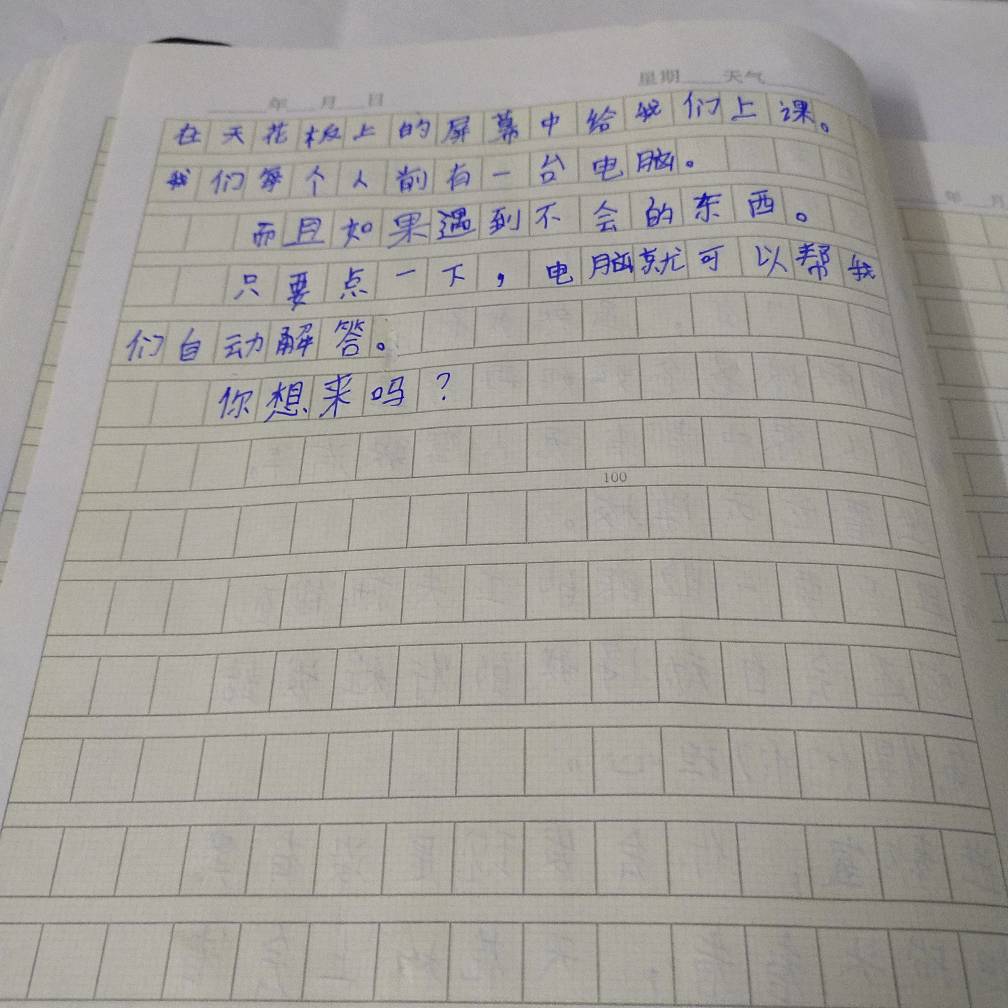 年 月 日 星期 天气
在天花板上的屏幕中给我们上课。
我们每个人前有一台电脑。
而且如果遇到不会的东西。
只要点一下，电脑就可以帮我
们自动解答。
你想来吗？
100
年 月